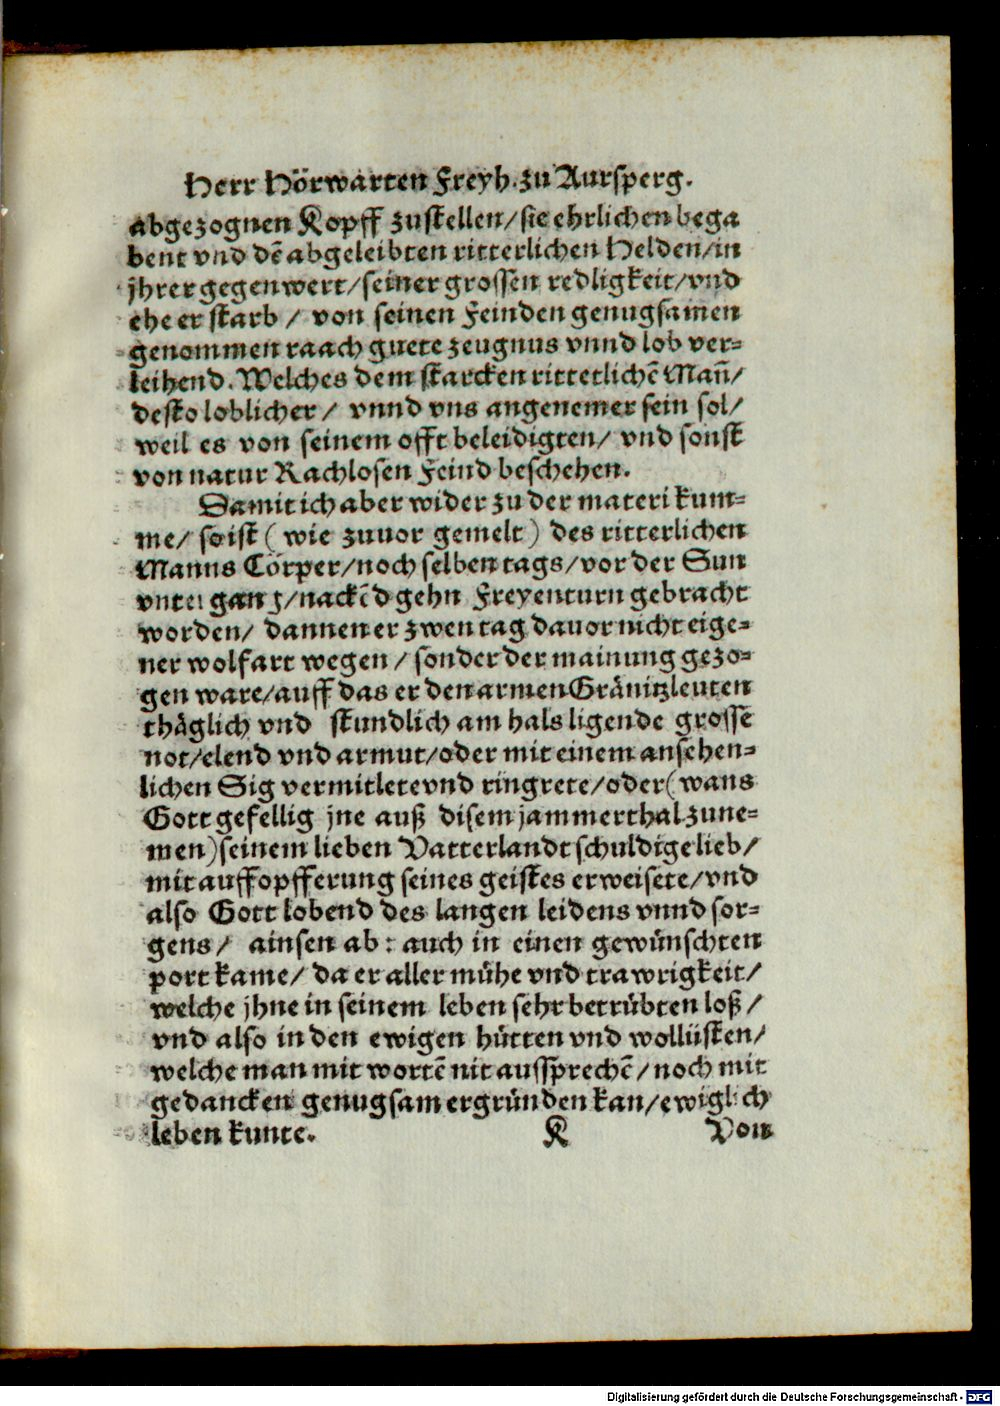 Herr Hörwarten Freyh. zu Aursperg.
abgezognen Kopff zustellen/ sie ehrlichen bega
bent vnd dē abgeleibten ritterlichen Helden/ in
jhrer gegenwert/ seiner grossen redligkeit/ vnd
ehe er starb / von seinen Feinden genugsamen
genommen raach guete zeugnus vnnd lob ver-
leihend. Welches dem starcken rittetlichē Man̄/
desto loblicher / vnnd vns angenemer sein sol/
weil es von seinem offt beleidigten/ vnd sonst
von natur Rachlosen Feind beschehen.
Damit ich aber wider zu der materi kum-
me/ so ist ( wie zuuor gemelt ) des ritterlichen
Manns Cörper/ noch selben tags/ vor der Sun
vnter gang/ nackēd gehn Freyenturn gebracht
worden/ dannen er zwen tag dauor nicht eige-
ner wolfart wegen / sonder der mainung gezo-
gen ware/ auff das er den armen Gränitzleuten
thäglich vnd stundlich am hals ligende grosse
not/ elend vnd armut/ oder mit einem ansehen-
lichen Sig vermitlete vnd ringrete/ oder ( wans
Gott gefellig jne auß disem jammerthal zune-
men) seinem lieben Vatterlandt schuldige lieb/
mit auffopfferung seines geistes erweisete/ vnd
also Gott lobend des langen leidens vnnd sor-
gens / ainsen ab : auch in einen gewünschten
port kame/ da er aller mühe vnd trawrigkeit/
welche jhne in seinem leben sehr betrübten loß /
vnd also in den ewigen hütten vnd wollüsten/
welche man mit wortē nit aussprechē/ noch mit
gedancken genugsam ergründen kan/ ewiglich
leben kunte.
K Von
Digitalisierung gefördert durch die Deutsche Forschungsgemeinschaft - DFG